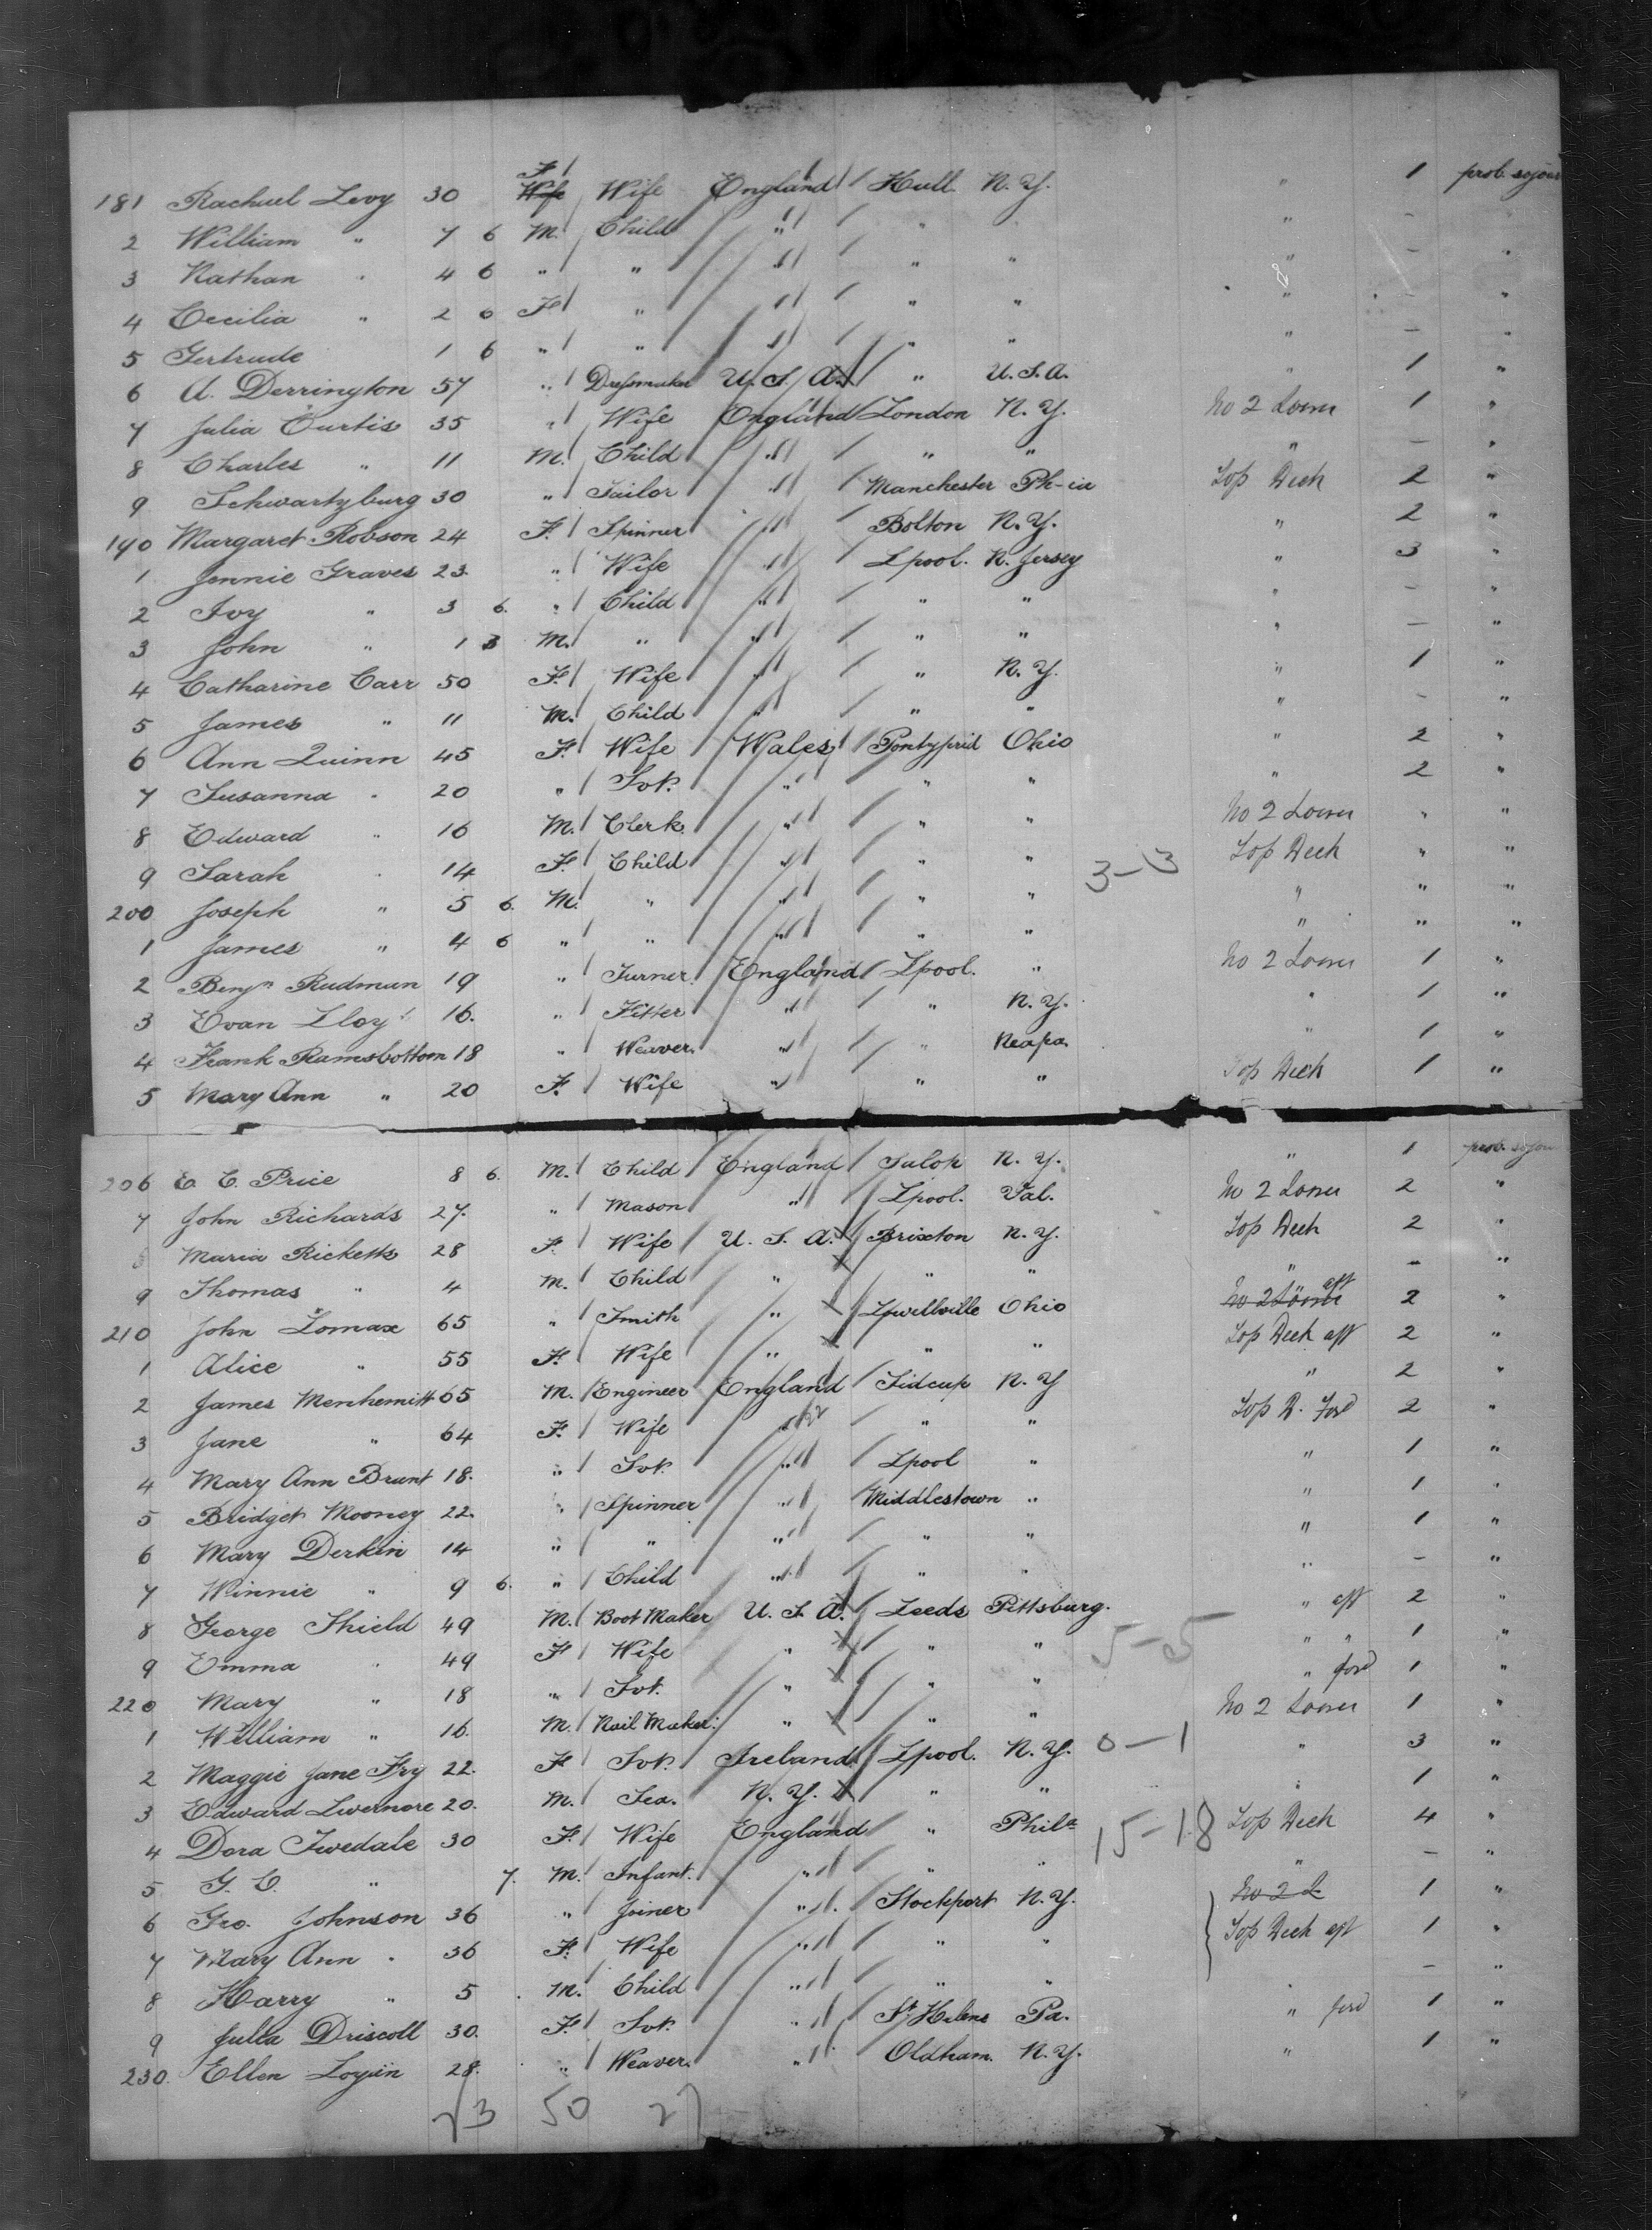 181 Rachael Levy 30 F Wife Wife England Hull N.Y. " 1 prob. sojour
2 William " 7 6 M. Child " " " –
3 Nathan " 4 6 " " " " " " – "
4 Cecilia " 2 6 F " " " " " – "
5 Gertrude 1 6 " " " " " " – "
6 A. Derrington 57 " Dressmaker U.S.A. " U.S.A. " 1 "
7 Julia Curtis 35 " Wife England London N.Y. No 2 Lower 1 "
8 Charles " 11 M. Child " " " " – "
9 Schwartzburg 30 " Tailor " Manchester Ph-ia Top Deck 2 "
190 Margaret Robson 24 F. Spinner " Bolton N.Y. " 2 "
1 Jennie Graves 23 " Wife " Lpool. N. Jersey " 3 "
2 Ivy " 3 6. " Child " " " " – "
3 John " 1 3 M. " " " " " – "
4 Catharine Carr 50 F. Wife " " N.Y. " 1 "
5 James " 11 M. Child " " " " – "
6 Ann Quinn 45 F. Wife Wales Pontyprid Ohio " 2 "
7 Susanna " 20 " Svt. " " " " 2 "
8 Edward " 16 M. Clerk " " " No 2 Lower " "
9 Sarah " 14 F. Child " " " 3–13 Top Deck " "
200 Joseph " 5 6. M. " " " " " " "
1 James " 4 6 " " " " " " " "
2 Benjn Rudman 19 " Turner England Lpool. " No 2 Lower 1 "
3 Evan Lloyd 16. " Fitter " " N.Y. " 1 "
4 Frank Ramsbottom 18 " Weaver. " " Neapa. " 1 "
5 Mary Ann " 20 F. Wife " " " Top Deck 1 "
206 E. C. Price 8 6. M. Child England Salop N.Y. " 1 prob. sojour
7 John Richards 27. " Mason " Lpool. Val. No 2 Lower 2 "
8 Maria Ricketts 28 F. Wife U.S.A. Brixton N.Y. Top Deck 2 "
9 Thomas " 4 M. Child " " " " – "
210 John Lomax 65 " Smith " Lowellville Ohio No 2 Lower aft 2 "
1 Alice " 55 F. Wife " " " Top Deck aft 2 "
2 James Menhemitt 65 M. Engineer England Sidcup N.Y " 2 "
3 Jane " 64 F. Wife " " " Top D. Ford 2 "
4 Mary Ann Brunt 18. " Svt. " Lpool " " 1 "
5 Bridget Mooney 22. " Spinner " Middlestown " " 1 "
6 Mary Derkin 14 " " " " " " 1 "
7 Winnie " 9 6. " Child " " " " – "
8 George Shield 49 M. Boot Maker U.S.A. Leeds Pittsburg. " aft 2 "
9 Emma " 49 F Wife " " " 5–5 " " 1 "
220 Mary " 18 " Svt. " " " " ford 1 "
1 William " 16. M. Nail Maker " " " No 2 Lower 1 "
2 Maggie Jane Fry 22. F Svt. Ireland Lpool. N.Y. 0–1 " 3 "
3 Edward Livermore 20. M. Sea. N.Y. " " " 1 "
4 Dora Twedale 30 F. Wife England " Phila 15–18 Top Deck 4 "
5 G. C. " 7. M. Infant. " " " " – "
6 Geo. Johnson 36 " Joiner " Stockport N.Y. No 2 L 1 "
7 Mary Ann " 36 F. Wife " " " Top Deck aft 1 "
8 Harry " 5 M. Child " " " – "
9 Julia Driscoll 30. F. Svt. " St Helens Pa. " ford 1 "
230. Ellen 28. " Weaver. " Oldham. N.Y. " 1 "
23 50 27